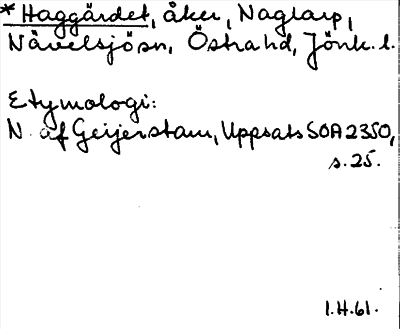 * Haggärdet, åker, Naglarp,
Nävelsjösn, Östra hd, Jönk. l.
Etymologi:
N. af Geijerstam, Uppsats SOA 2350,
s. 25.
I.H.61.